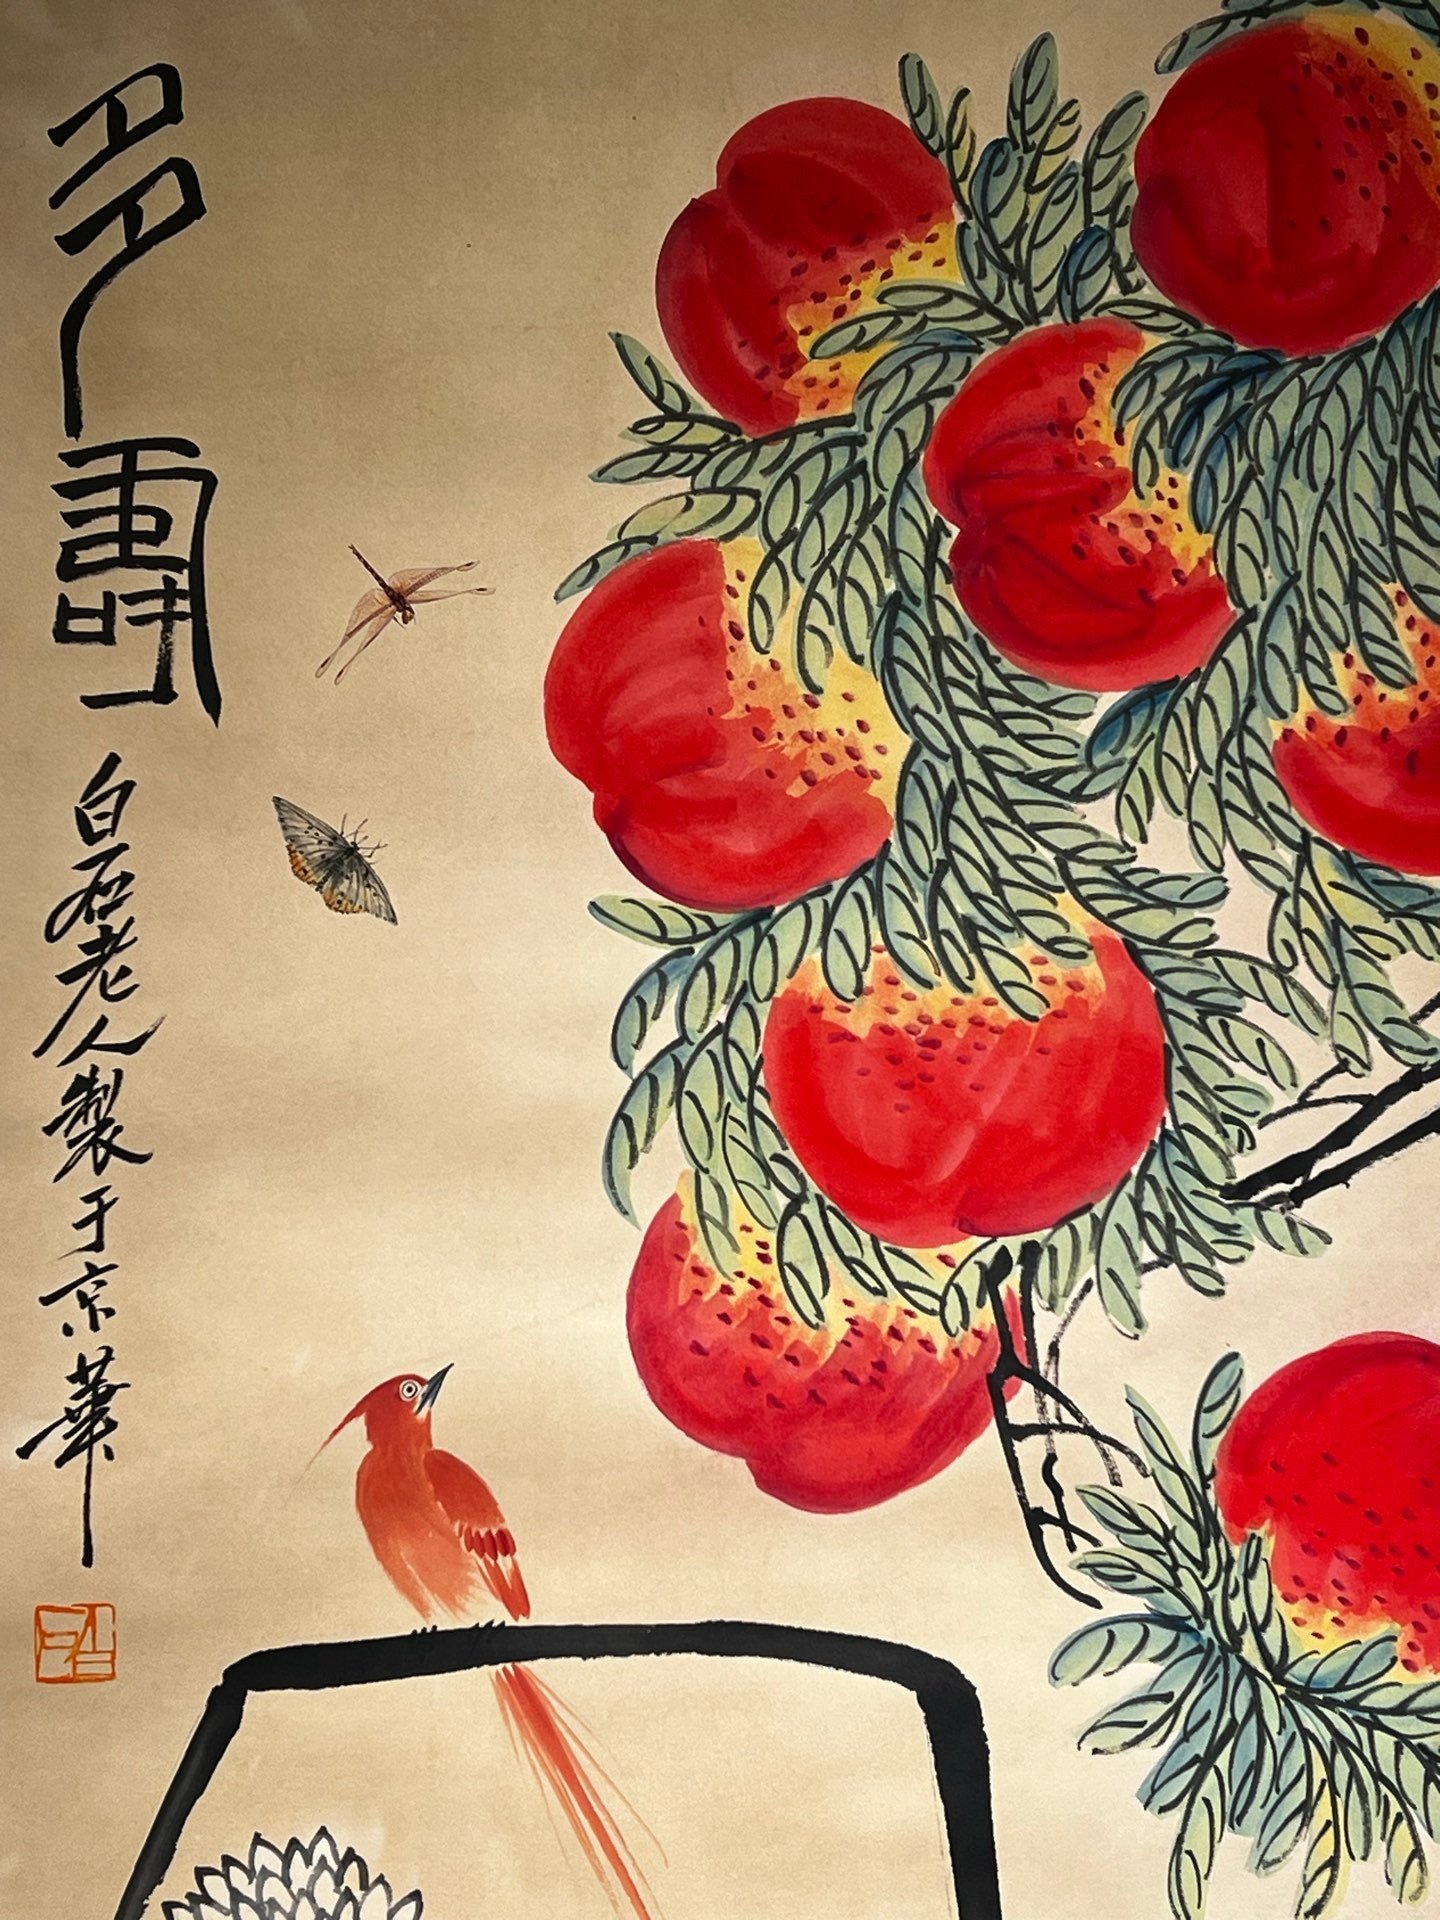 多壽
白石老人製于京華